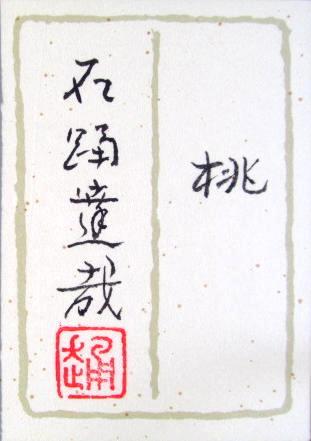 桃
石踊達哉
踊